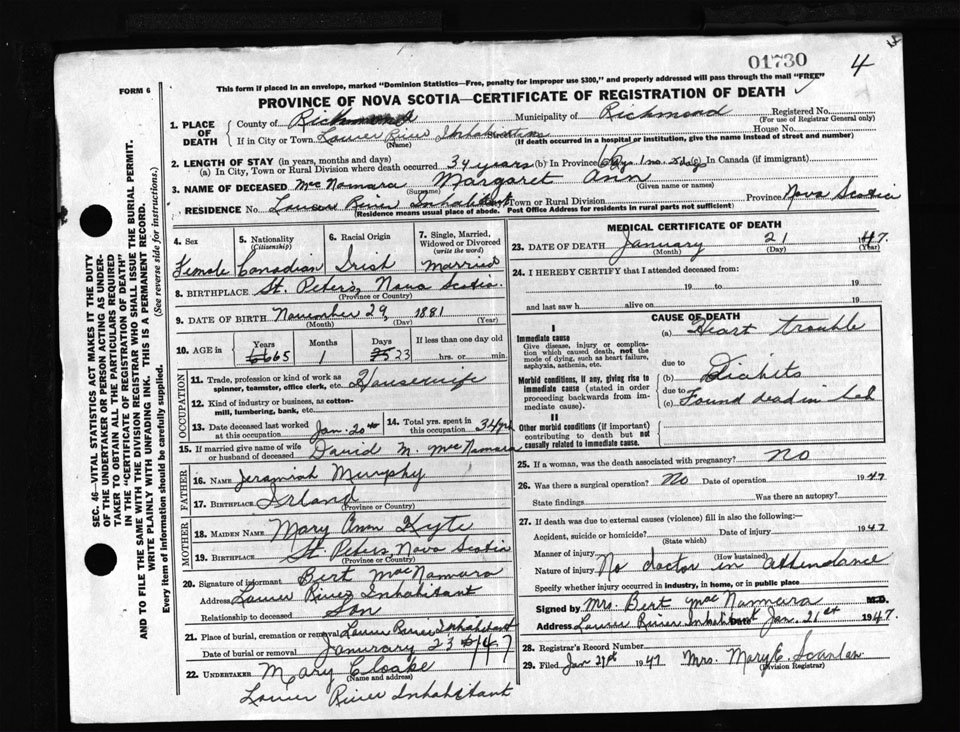 01730
4
FORM 6
This form if placed in an envelope, marked "Dominion Statistics—Free, penalty for improper use $300," and properly addressed will pass through the mail "FREE"
PROVINCE OF NOVA SCOTIA—CERTIFICATE OF REGISTRATION OF DEATH
1. PLACE OF DEATH
County of Richmond Municipality of Richmond Registered No.
(For use of Registrar General only)
If in City or Town Lower River Inhabitants House No.
(Name) (If death occurred in a hospital or institution, give the name instead of street and number)
2. LENGTH OF STAY (in years, months and days)
(a) In City, Town or Rural Division where death occurred 34 years (b) In Province (c) In Canada (if immigrant)
3. NAME OF DECEASED McNamara Margaret Ann
(Surname) (Given name or names)
RESIDENCE No. Lower River Inhabitant Town or Rural Division Province Nova Scotia
(Residence means usual place of abode. Post Office Address for residents in rural parts not sufficient)
4. Sex Female
5. Nationality (Citizenship) Canadian
6. Racial Origin Irish
7. Single, Married, Widowed or Divorced (write the word) Married
8. BIRTHPLACE St. Peters, Nova Scotia
(Province or Country)
9. DATE OF BIRTH November 29, 1881
(Month) (Day) (Year)
10. AGE in Years 65 Months 1 Days 23 If less than one day old
hrs. or min.
OCCUPATION
11. Trade, profession or kind of work as spinner, teamster, office clerk, etc. Housewife
12. Kind of industry or business, as cotton-mill, lumbering, bank, etc.
13. Date deceased last worked at this occupation Jan. 20th
14. Total yrs. spent in this occupation 34 yrs
15. If married give name of wife or husband of deceased David M. McNamara
FATHER
16. Name Jeramiah Murphy
17. Birthplace Irland
(Province or Country)
MOTHER
18. MAIDEN NAME Mary Ann Kyte
19. BIRTHPLACE St. Peters, Nova Scotia
(Province or Country)
20. Signature of informant Bert MacNamara
Address Lower River Inhabitant
Relationship to deceased Son
21. Place of burial, cremation or removal Lower River Inhabitant
Date of burial or removal Janurary 23 1947
22. UNDERTAKER Mary Cloake
(Name and address)
Lower River Inhabitant
MEDICAL CERTIFICATE OF DEATH
23. DATE OF DEATH January 21 1947.
(Month) (Day) (Year)
24. I HEREBY CERTIFY that I attended deceased from:
19 to 19
and last saw h alive on 19
CAUSE OF DEATH
I
Immediate cause
Give disease, injury or complication which caused death, not the mode of dying, such as heart failure, asphyxia, asthenia, etc.
(a) Heart trouble
due to
Morbid conditions, if any, giving rise to immediate cause (stated in order proceeding backwards from immediate cause).
(b) Diabits
due to
(c) Found dead in bed
II
Other morbid conditions (if important) contributing to death but not causally related to immediate cause.
25. If a woman, was the death associated with pregnancy? No
26. Was there a surgical operation? No Date of operation 1947
State findings Was there an autopsy?
27. If death was due to external causes (violence) fill in also the following:—
Accident, suicide or homicide? Date of injury 1947
(State which)
Manner of injury
(How sustained)
Nature of injury No doctor in attendance
Specify whether injury occurred in industry, in home, or in public place
Signed by Mrs. Bert MacNamara M.D.
Address Lower River Inhabitant Date Jan. 21st 1947.
28. Registrar's Record Number
29. Filed Jan 21st 1947 Mrs. Mary E. Scanlan
(Division Registrar)
SEC. 46—VITAL STATISTICS ACT MAKES IT THE DUTY OF THE UNDERTAKER OR PERSON ACTING AS UNDERTAKER TO OBTAIN ALL THE PARTICULARS REQUIRED IN THE "CERTIFICATE OF REGISTRATION OF DEATH"
AND TO FILE THE SAME WITH THE DIVISION REGISTRAR WHO SHALL ISSUE THE BURIAL PERMIT.
WRITE PLAINLY WITH UNFADING INK. THIS IS A PERMANENT RECORD.
Every item of information should be carefully supplied. (See reverse side for instructions.)